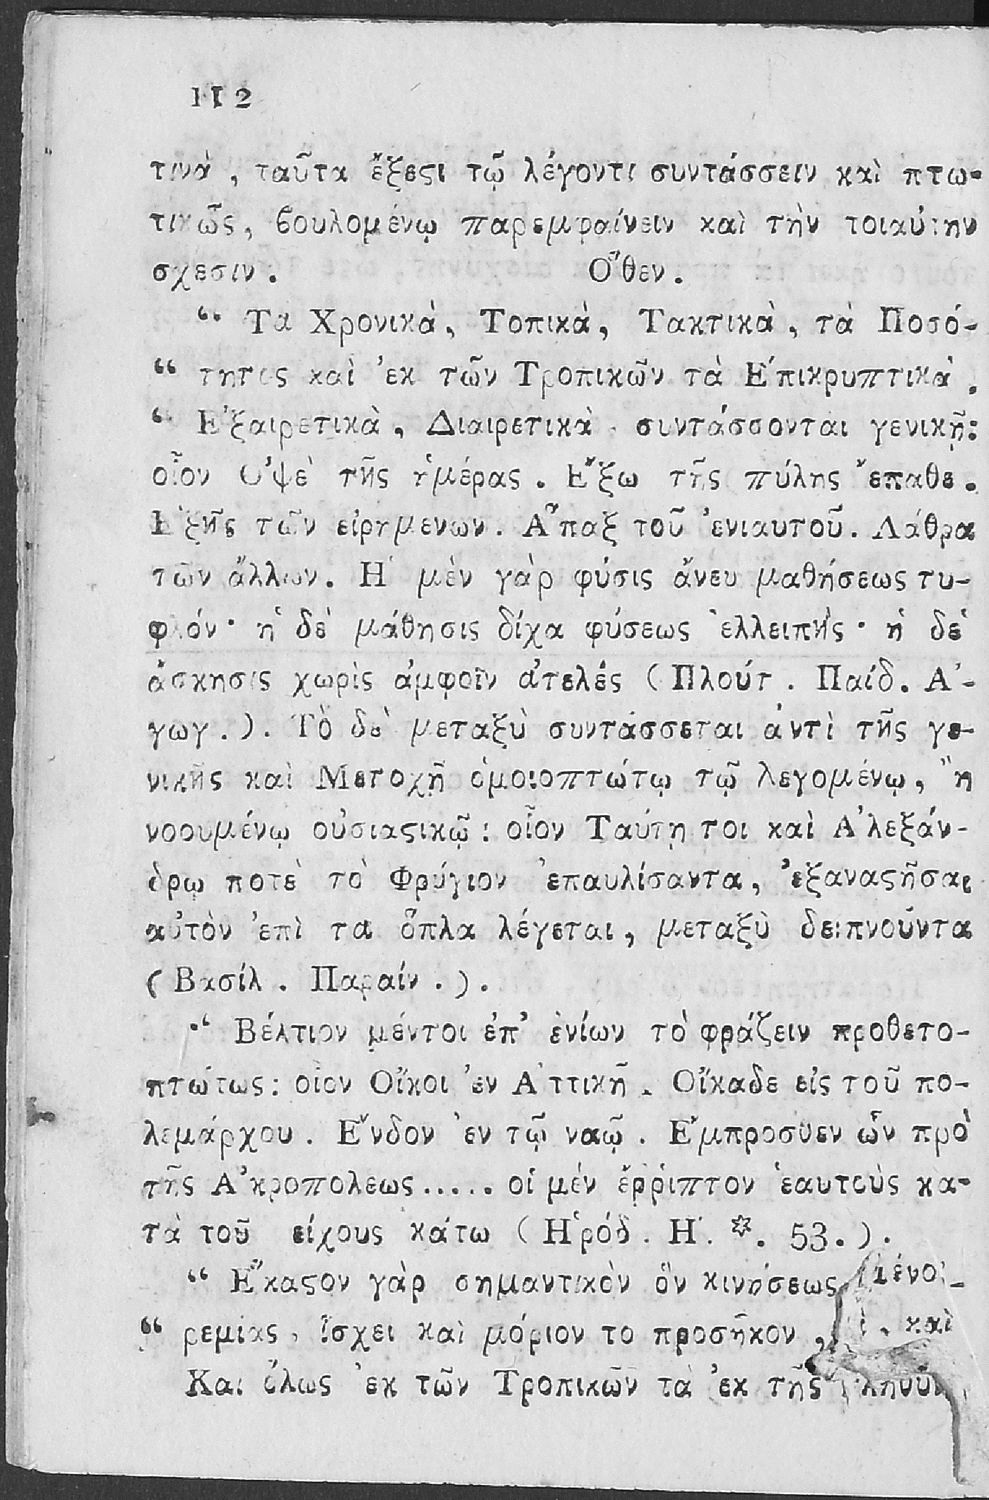 112
τινὰ, ταῦτα ἔξεϛι τῷ λέγοντι συντάσσειν καὶ πτω-
τικῶς, βουλομένῳ παρεμφαίνειν καὶ τὴν τοιαύτην
σχεσιν. Ὅθεν.
“ Τα Χρονικὰ, Τοπικὰ, Τακτικὰ, τὰ Ποσό-
“ τητος καὶ ἐκ τῶν Τροπικῶν τὰ Ἐπικρυπτικὰ.
“ Ἐξαιρετικὰ, Διαιρετικὰ συντάσσονται γενικῇ:
οἷον Ὀψὲ τῆς ἡμέρας. Ἔξω τῆς πύλης ἔπαθε.
Ἑξῆς τῶν εἰρημενων. Ἅπαξ τοῦ ἐνιαυτοῦ. Λάθρα
τῶν ἄλλων. Ἡ μὲν γὰρ φύσις ἄνευ μαθήσεως τυ-
φλόν· ἡ δὲ μάθησις δίχα φύσεως ἐλλειπὴς· ἡ δὲ
ἄσκησις χωρὶς ἀμφοῖν ἀτελές (Πλούτ. Παίδ. Ἀ-
γωγ.). Τὸ δὲ μεταξὺ συντάσσεται ἀντὶ τῆς γε-
νικῆς καὶ Μετοχῇ ὁμοιοπτώτῳ τῷ λεγομένῳ, ἢ
νοουμένῳ οὐσιαϛικῷ: οἷον Ταύτῃ τοι καὶ Ἀλεξάν-
δρῳ ποτὲ τὸ Φρύγιον ἐπαυλίσαντα, ἐξαναϛῆσαι
αὐτὸν ἐπὶ τα ὅπλα λέγεται, μεταξὺ δειπνοῦντα
(Βασίλ. Παραίν.).
“ Βέλτιον μέντοι ἐπ’ ἐνίων τὸ φράζειν προθετο-
πτώτως: οἷον Οἴκοι ἐν Ἀττικῇ. Οἴκαδε εἰς τοῦ πο-
λεμάρχου. Ἔνδον ἐν τῷ ναῷ. Ἔμπροσθεν ὢν πρὸ
τῆς Ἀκροπολεως..... οἱ μέν ἔρριπτον ἑαυτοὺς κα-
τὰ τοῦ είχους κάτω (Ἡρόδ. Η. *. 53.).
“ Ἕκαϛον γὰρ σημαντικὸν ὂν κινήσεως
“ ρεμίας, ἴσχει καὶ μόριον το προσῆκον, καὶ
Και ὅλως ἐκ τῶν Τροπικῶν τα ἐκ τῆς